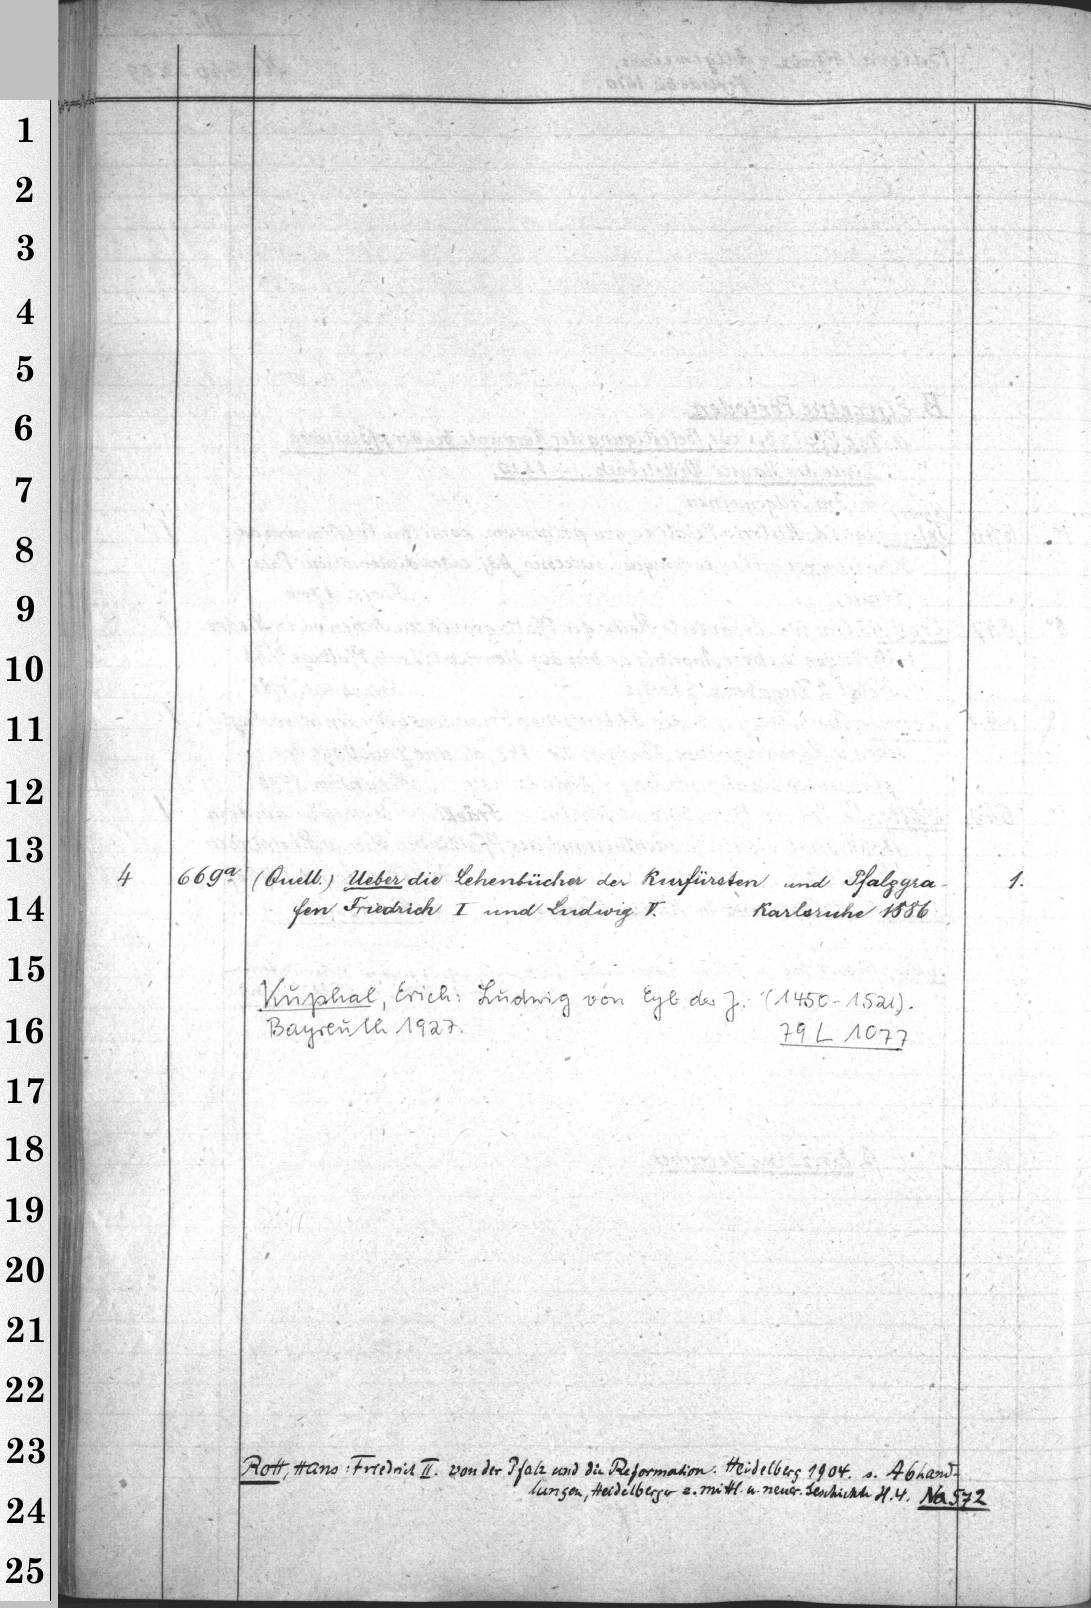 1
2
3
4
5
6
7
8
9
10
11
12
13
4 669a. (Quell.) Ueber die Lehenbücher der Kurfürsten und Pfalzgra- 1.
14
fen Friedrich I und Ludwig V. Karlsruhe 1886
15
Kuphal, Erich: Ludwig von Eyb der J. (1450-1521).
16
Bayreuth 1927. 79 L 1077
17
18
19
20
21
22
23
Rott, Hans: Friedrich II. von der Pfalz und die Reformation. Heidelberg 1904. s. Abhand-
24
lungen, Heidelberger z. mittl. u. neuer. Geschichte H.4. Na 572
25